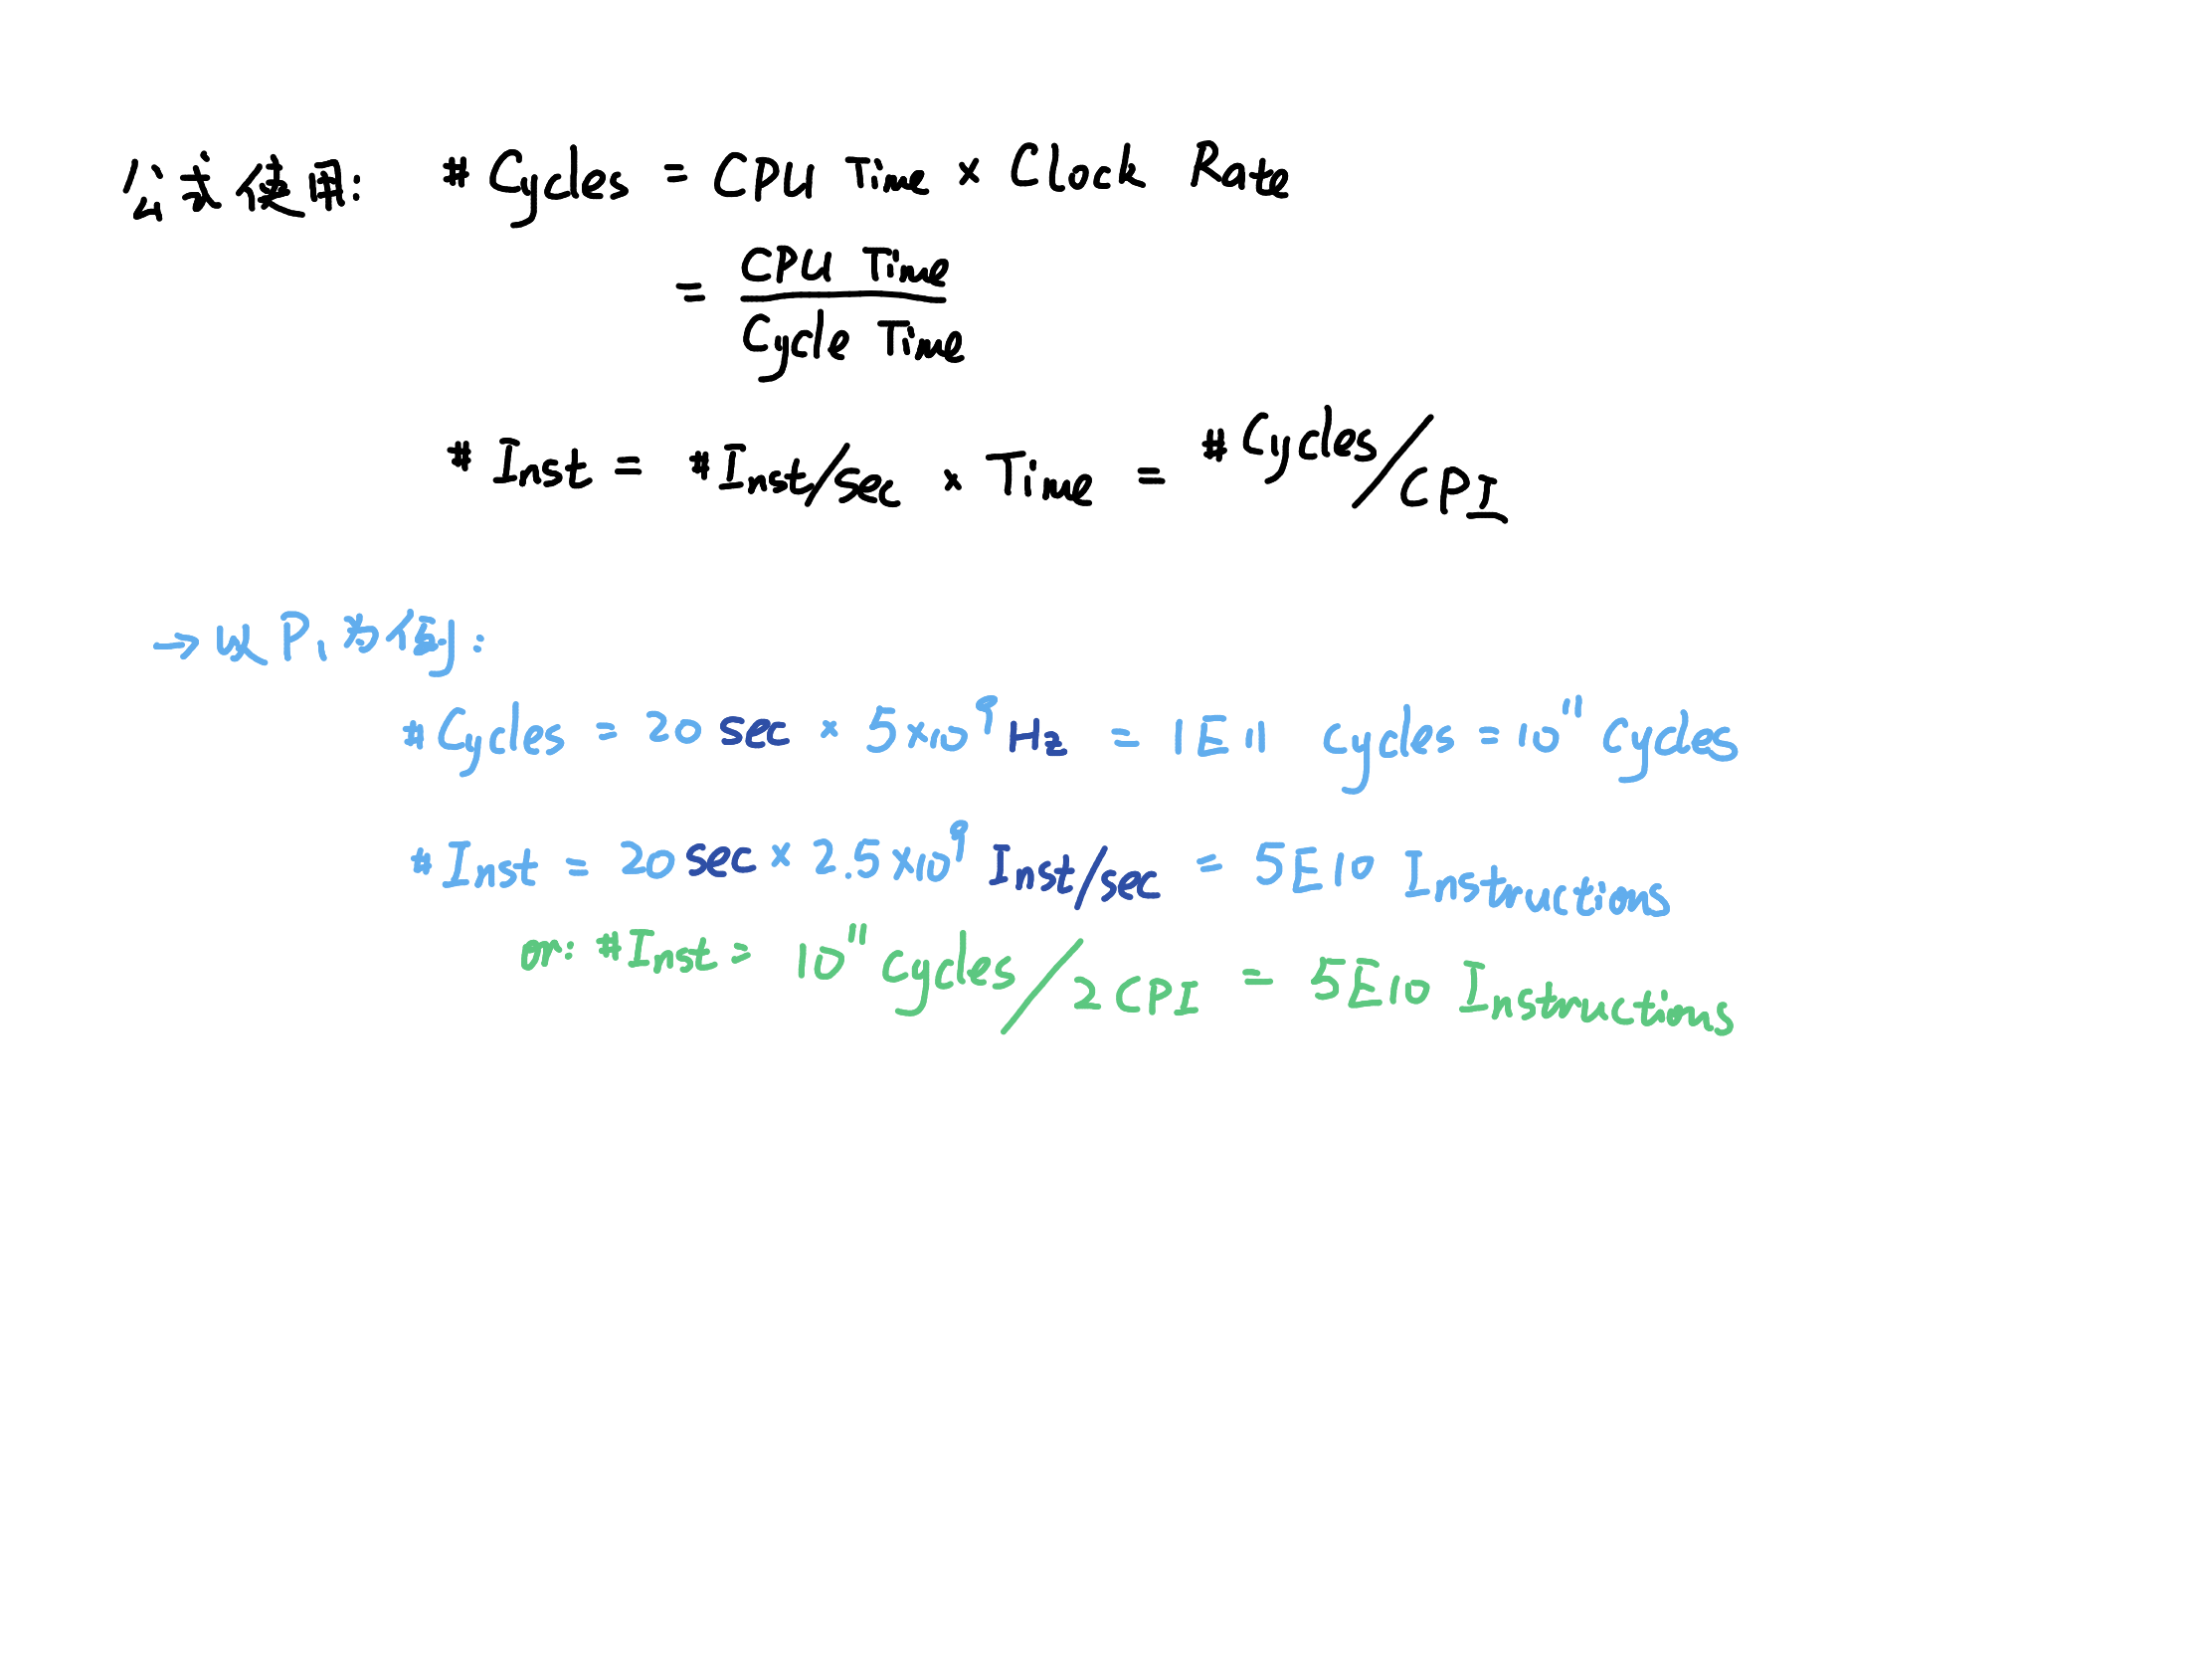 公式使用: # Cycles = CPU Time × Clock Rate
= CPU Time / Cycle Time
# Inst = # Inst/sec × Time = # Cycles/CPI
→ 以 P₁ 為例:
# Cycles = 20 sec × 5×10⁹ Hz = 1E11 cycles = 10¹¹ cycles
# Inst = 20 sec × 2.5×10⁹ Inst/sec = 5E10 Instructions
or: # Inst = 10¹¹ cycles/2 CPI = 5E10 Instructions